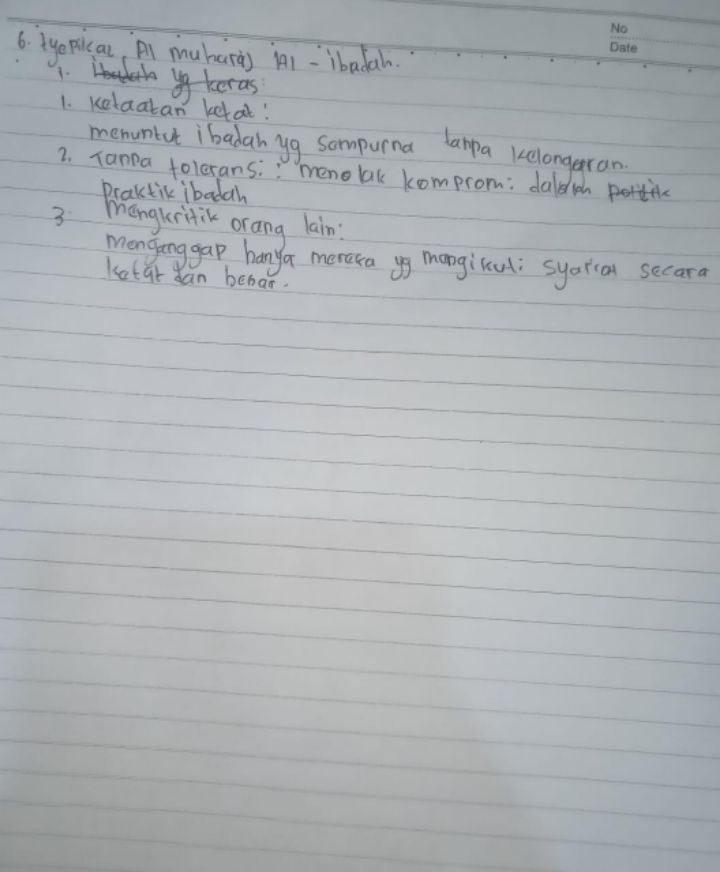 No
Date
6. tyepikal Al muharas Al - ibadah.
1. ibadah yg keras:
1. ketaatan ketat:
menuntut ibadah yg sempurna tanpa kelonggaran.
2. Tanpa toleransi: menolak kompromi dalam politik
Praktik ibadah
3. mengkritik orang lain:
menganggap hanya mereka yg mengikuti syariat secara
ketat dan benar.